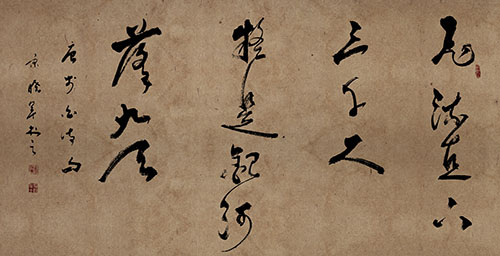 飛流直下
三千尺
疑是銀河
落九天
唐李白詩句